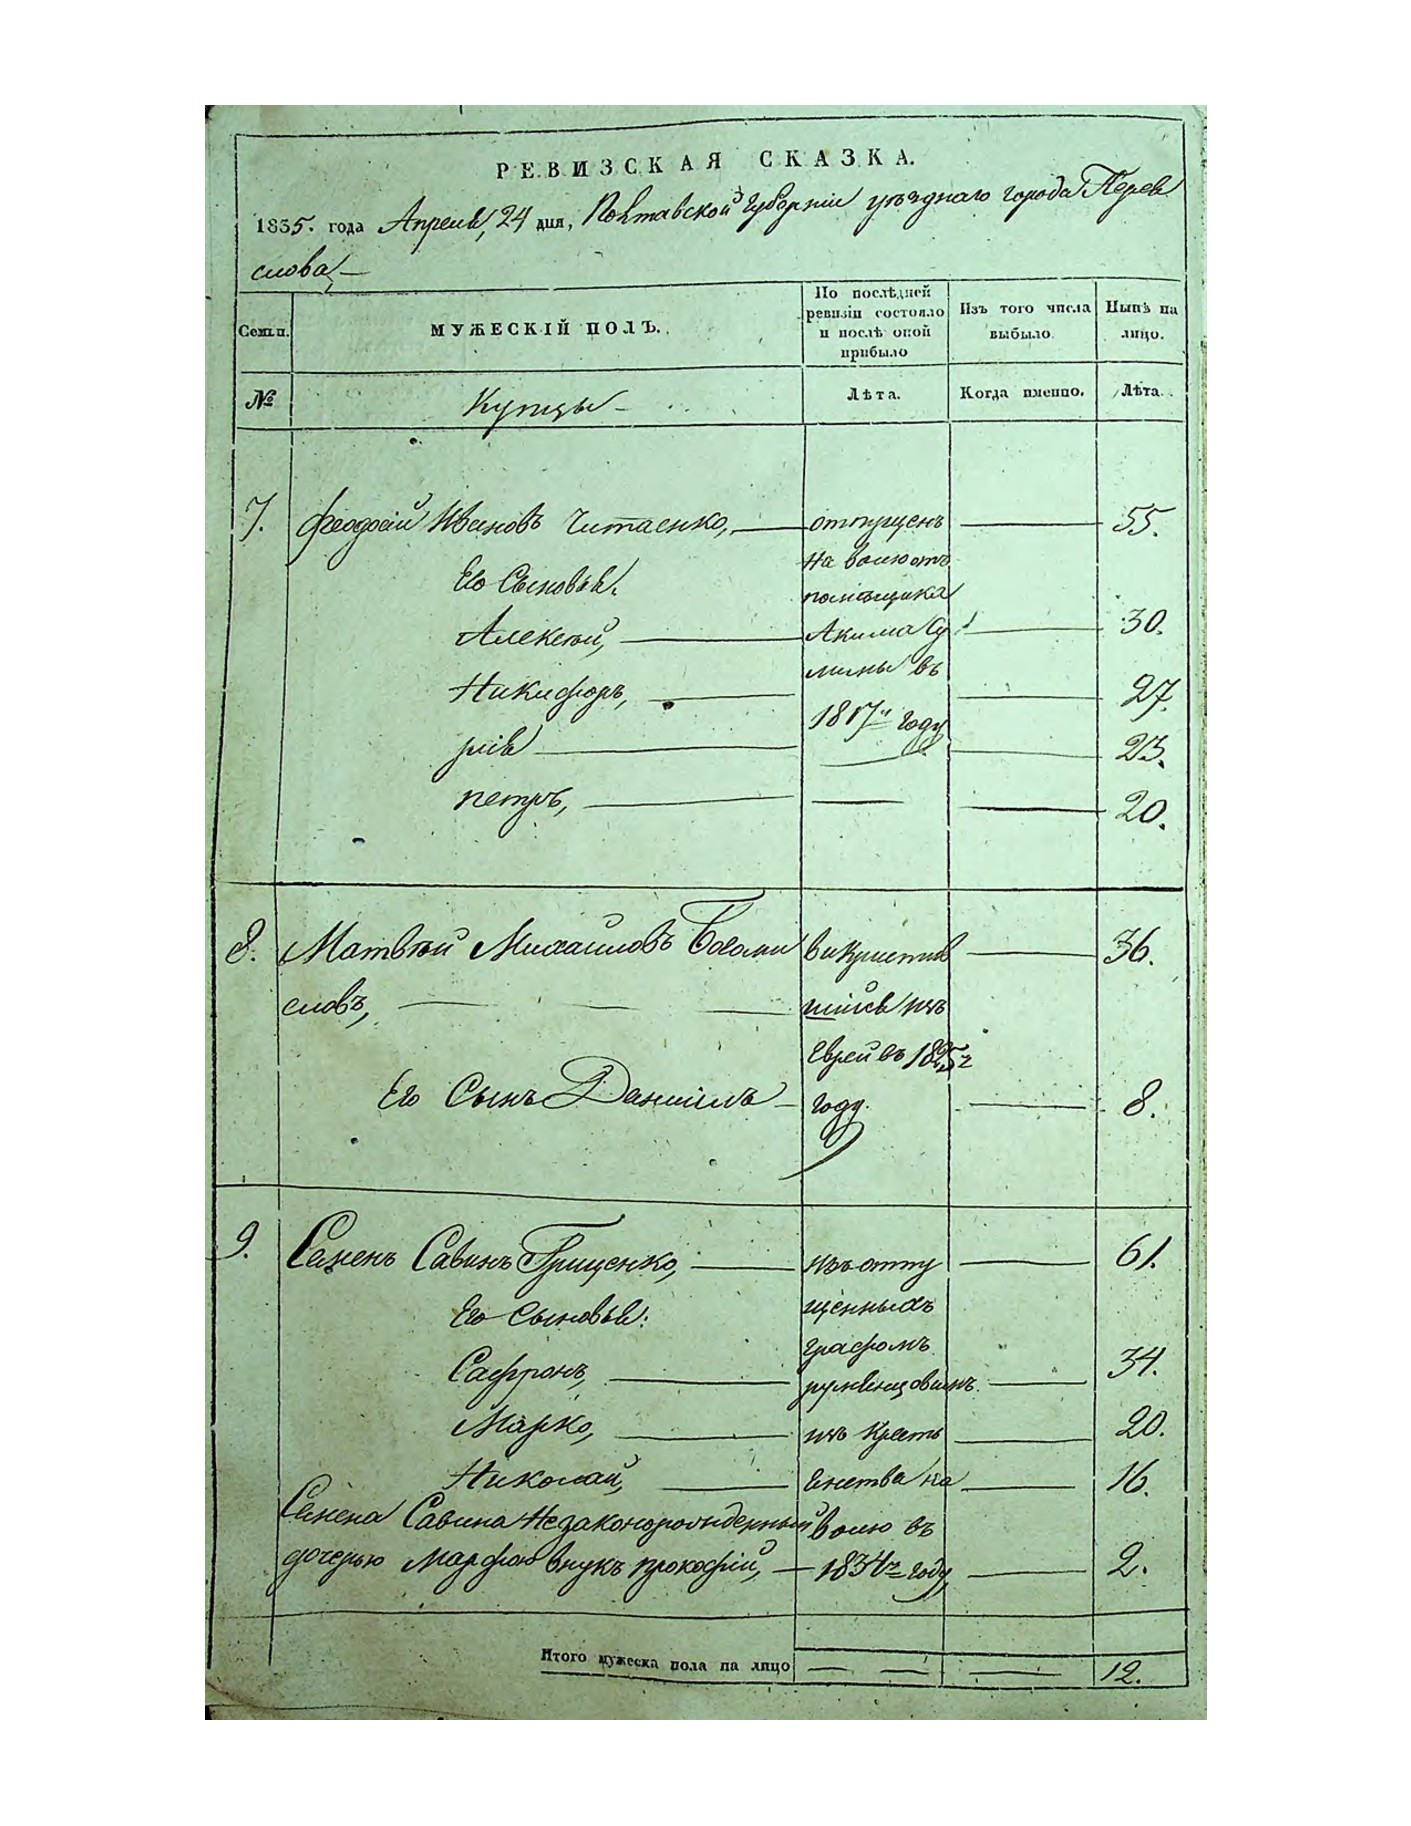 РЕВИЗСКАЯ СКАЗКА.
1835. года Апреля, 24 дня, Полтавской Губерніи уѣзднаго города Перея
слова,
Семьи. МУЖЕСКІЙ ПОЛЪ. По послѣдней ревизіи состояло и послѣ оной прибыло Изъ того числа выбыло. Нынѣ на лицо.
№ Купцы Лѣта. Когда именно. Лѣта.
7. Феодосій Ивановъ отпущенъ 55.
на волю отъ
Его Сыновья.
помѣщика
Алексѣй, Акима Су 30.
лимы въ
Никифоръ, 27.
1817м году
23.
петръ, 20.
8. Матвѣй Михайловъ Богоми викристив 36.
словъ, шійся изъ
Еврей въ 1825г
Его Сынъ Даніилъ году. 8.
9. Семенъ Савинъ Грищенко, изъ отпу 61.
Его Сыновья: щенныхъ
графомъ
Сафронъ, румянцовымъ 34.
Марко, изъ крестъ 20.
Николай, Енства на 16.
Семена Савина Незаконорожденный волю въ
дочерью Марфою внукъ прокофій, 1834г году 2.
Итого мужеска пола на лицо 12.